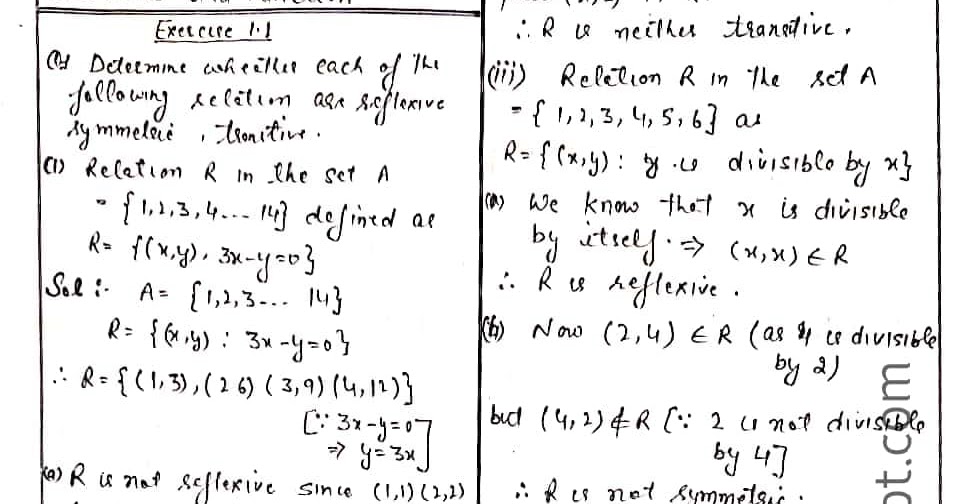 Exercise 1.1
(1) Determine whether each of the
following relation are reflexive
symmetric , transitive.
(1) Relation R in the set A
= {1,2,3,4... 14} defined as
R= {(x,y), 3x-y=0}
Sol:- A= {1,2,3... 14}
R= {(x,y) : 3x-y=0}
∴ R= {(1,3),(2 6) (3,9) (4,12)}
[∵ 3x-y=0
⇒ y=3x]
(a) R is not reflexive since (1,1) (2,2)
∴ R is neither transitive.
(iii) Relation R in the set A
= {1,2,3,4,5,6} as
R= {(x,y) : y is divisible by x}
(a) We know that x is divisible
by itself. ⇒ (x,x) ∈ R
∴ R is reflexive.
(b) Now (2,4) ∈ R (as 4 is divisible
by 2)
but (4,2) ∉ R [∵ 2 is not divisible
by 4]
∴ R is not symmetric.
pt.com